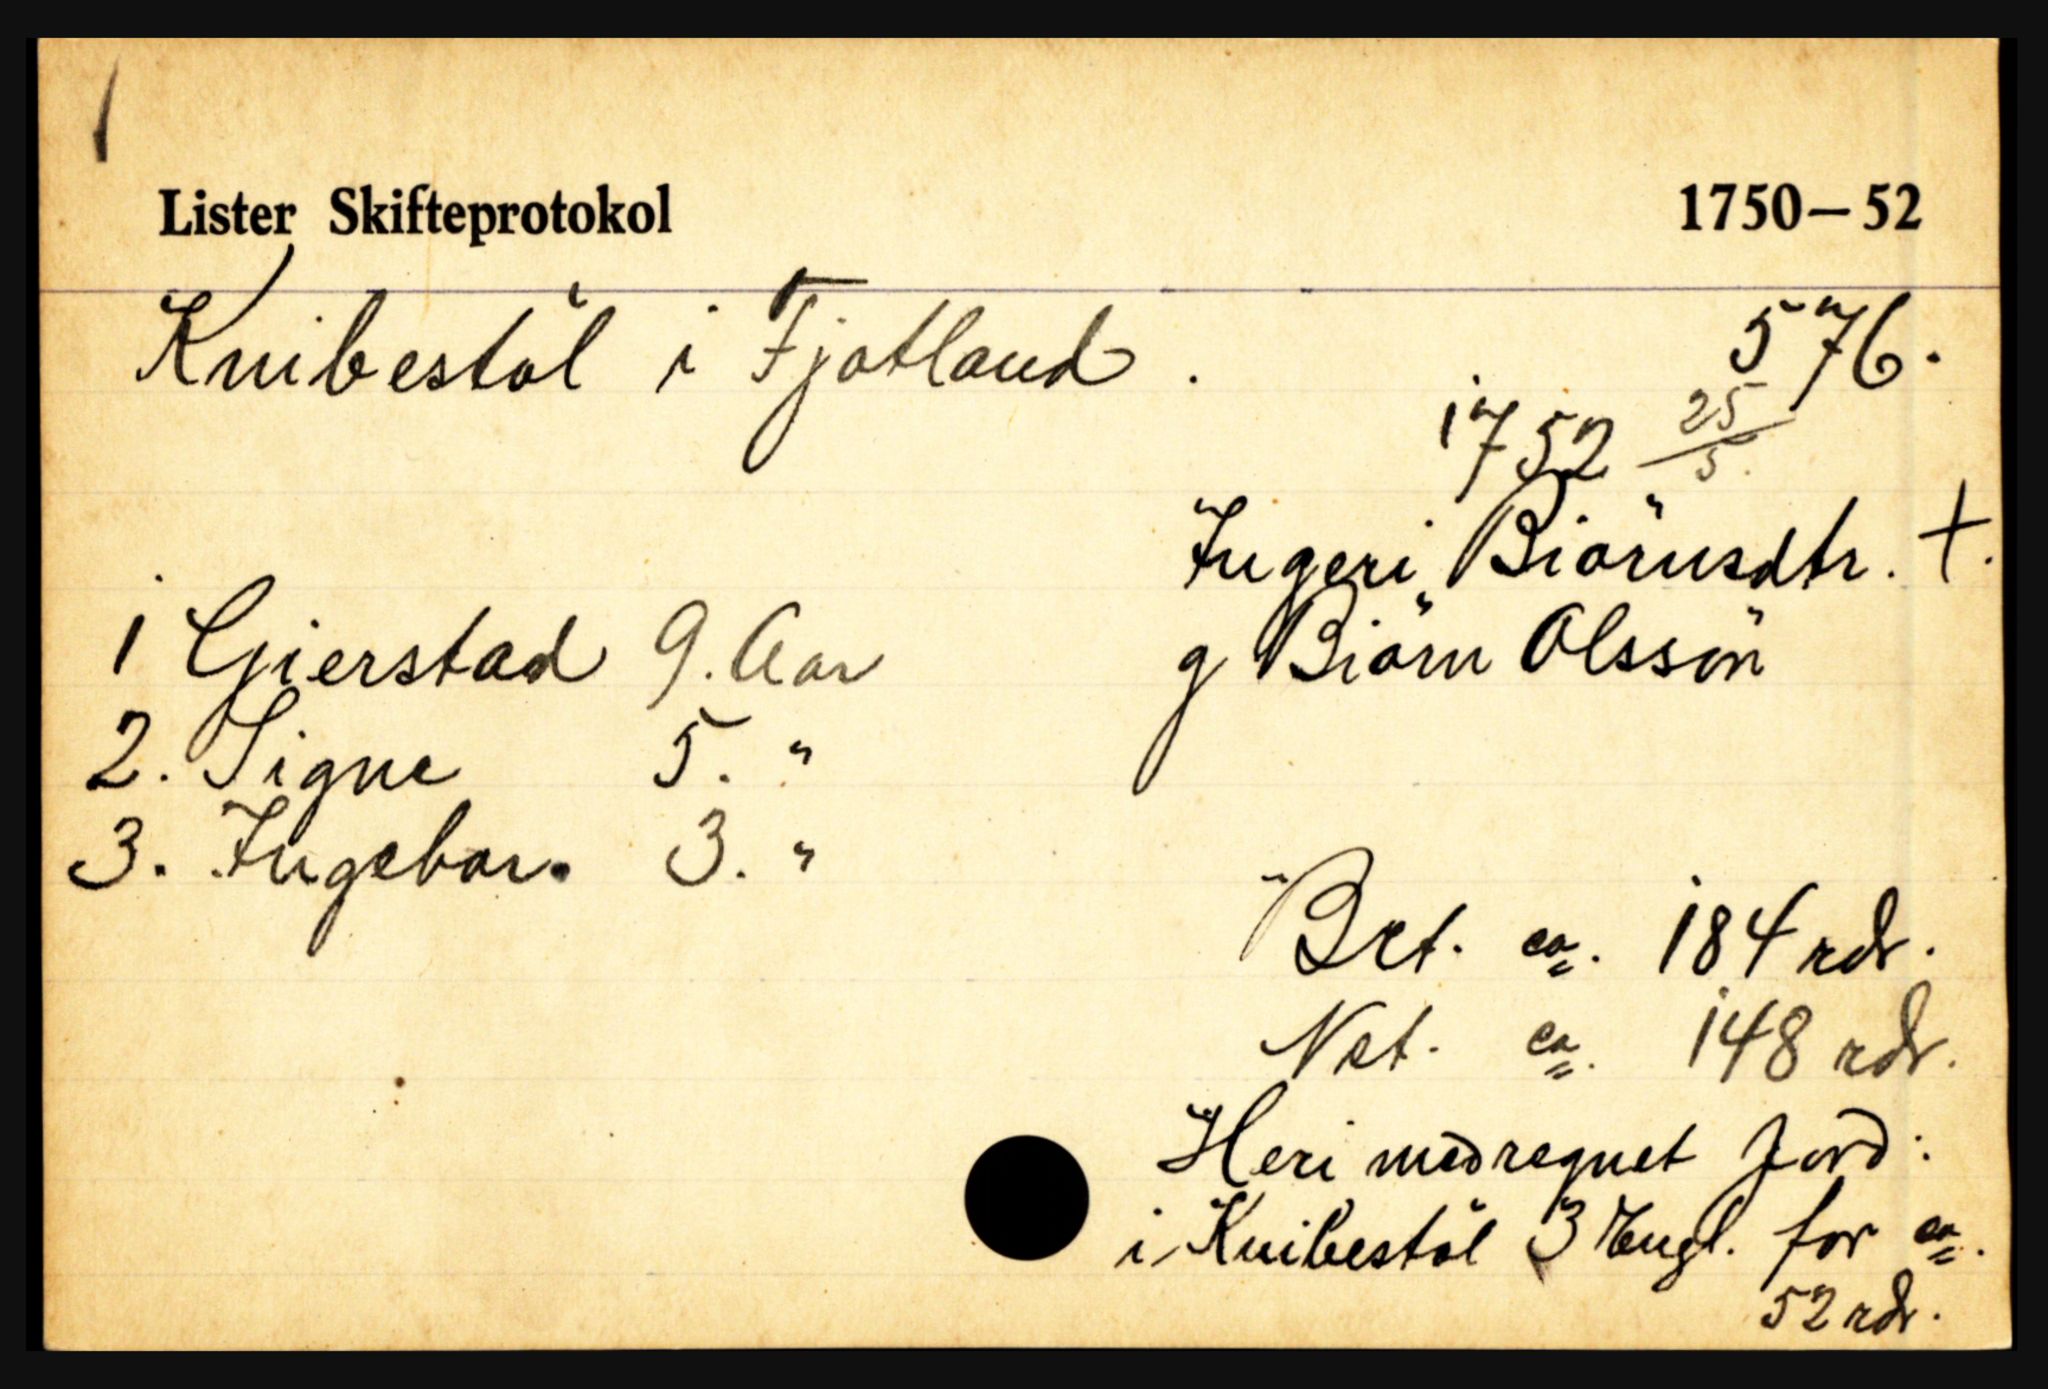 Lister Skifteprotokol 1750–52
Knibestöl i Fjotland. 576.
1752 25/5.
Ingeri Biörnsdtr. +.
1 Gierstad 9. Aar g Biörn Olssön
2. Signe 5. "
3. Ingebor. 3. "
Brt. ca. 184 rdr.
Net. ca. 148 rdr.
Heri medregnet Jord:
i Knibestöl 3 Engl. for ca.
52 rdr.